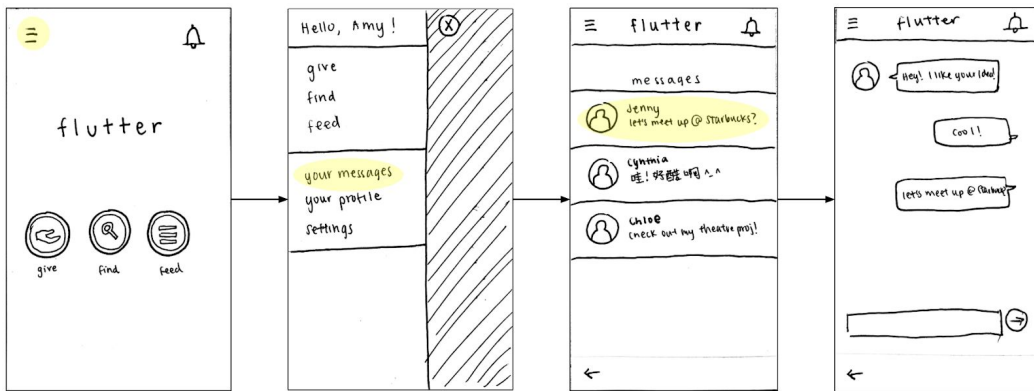 flutter
give
find
feed
Hello, Amy!
give
find
feed
your messages
your profile
settings
flutter
messages
Jenny
let's meet up @ Starbucks?
Cynthia
哇! 好酷啊 ^_^
Chloe
Check out my theatre proj!
flutter
Hey! I like your idea!
Cool!
let's meet up @ Starbucks